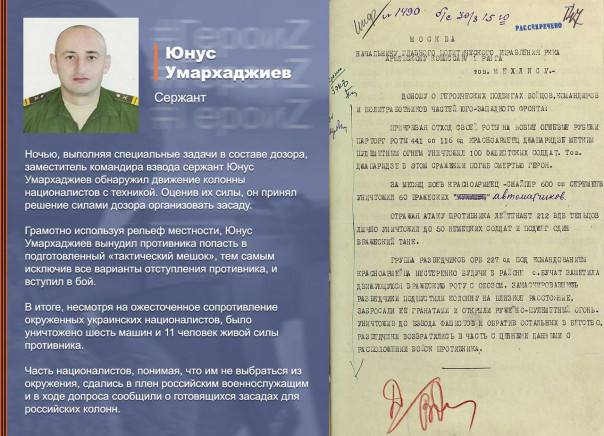 #ГероиZ
Юнус
Умархаджиев
Сержант
Ночью, выполняя специальные задачи в составе дозора,
заместитель командира взвода сержант Юнус
Умархаджиев обнаружил движение колонны
националистов с техникой. Оценив их силы, он принял
решение силами дозора организовать засаду.
Грамотно используя рельеф местности, Юнус
Умархаджиев вынудил противника попасть в
подготовленный «тактический мешок», тем самым
исключив все варианты отступления противника, и
вступил в бой.
В итоге, несмотря на ожесточенное сопротивление
окруженных украинских националистов, было
уничтожено шесть машин и 11 человек живой силы
противника.
Часть националистов, понимая, что им не выбраться из
окружения, сдались в плен российским военнослужащим
и в ходе допроса сообщили о готовящихся засадах для
российских колонн.
№ 1490
РАССЕКРЕЧЕНО
МОСКВА
НАЧАЛЬНИКУ ГЛАВНОГО ПОЛИТИЧЕСКОГО УПРАВЛЕНИЯ РККА
АРМЕЙСКОМУ КОМИССАРУ 1 РАНГА
тов. МЕХЛИСУ.-
ДОНОШУ О ГЕРОИЧЕСКИХ ПОДВИГАХ БОЙЦОВ, КОМАНДИРОВ
И ПОЛИТРАБОТНИКОВ ЧАСТЕЙ ЮГО-ЗАПАДНОГО ФРОНТА:
ПРИКРЫВАЯ ОТХОД СВОЕЙ РОТЫ НА НОВЫЕ ОГНЕВЫЕ РУБЕЖИ
ПАРТОРГ РОТЫ 441 СП 116 СД КРАСНОАРМЕЕЦ ДЖАПАРИДЗЕ МЕТКИМ
ПУЛЕМЕТНЫМ ОГНЕМ УНИЧТОЖИЛ 100 ФАШИСТСКИХ СОЛДАТ. Тов.
ДЖАПАРИДЗЕ В ЭТОМ СРАЖЕНИИ ПОГИБ СМЕРТЬЮ ГЕРОЯ.
ЗА МЕСЯЦ БОЕВ КРАСНОАРМЕЕЦ-СНАЙПЕР 600 СП
УНИЧТОЖИЛ 60 ВРАЖЕСКИХ автоматчиков.
ОТРАЖАЯ АТАКУ ПРОТИВНИКА ЛЕЙТЕНАНТ 212 ВДБ ТЕЛЬЦОВ
ЛИЧНО УНИЧТОЖИЛ ДО 50 НЕМЕЦКИХ СОЛДАТ И ПОДЖЕГ ОДИН
ВРАЖЕСКИЙ ТАНК.
ГРУППА РАЗВЕДЧИКОВ ОРБ 227 СД ПОД КОМАНДОВАНИЕМ
КРАСНОАРМЕЙЦА НЕСТЕРЕНКО БУДУЧИ В РАЙОНЕ С. БУЧАТ ЗАМЕТИЛА
ДВИГАЮЩУЮСЯ ВРАЖЕСКУЮ РОТУ С ОБОЗОМ. ЗАМАСКИРОВАВШИСЬ
РАЗВЕДЧИКИ ПОДПУСТИЛИ КОЛОННУ НА БЛИЗКОЕ РАССТОЯНИЕ,
ЗАБРОСАЛИ ЕЕ ГРАНАТАМИ И ОТКРЫЛИ РУЖЕЙНО-ПУЛЕМЕТНЫЙ ОГОНЬ.
УНИЧТОЖИВ ДО ВЗВОДА ФАШИСТОВ И ОБРАТИВ ОСТАЛЬНЫХ В БЕГСТВО,
РАЗВЕДЧИКИ ВОЗВРАТИЛИСЬ В ЧАСТЬ С ЦЕННЫМИ ДАННЫМИ О
РАСПОЛОЖЕНИИ ВОЙСК ПРОТИВНИКА.